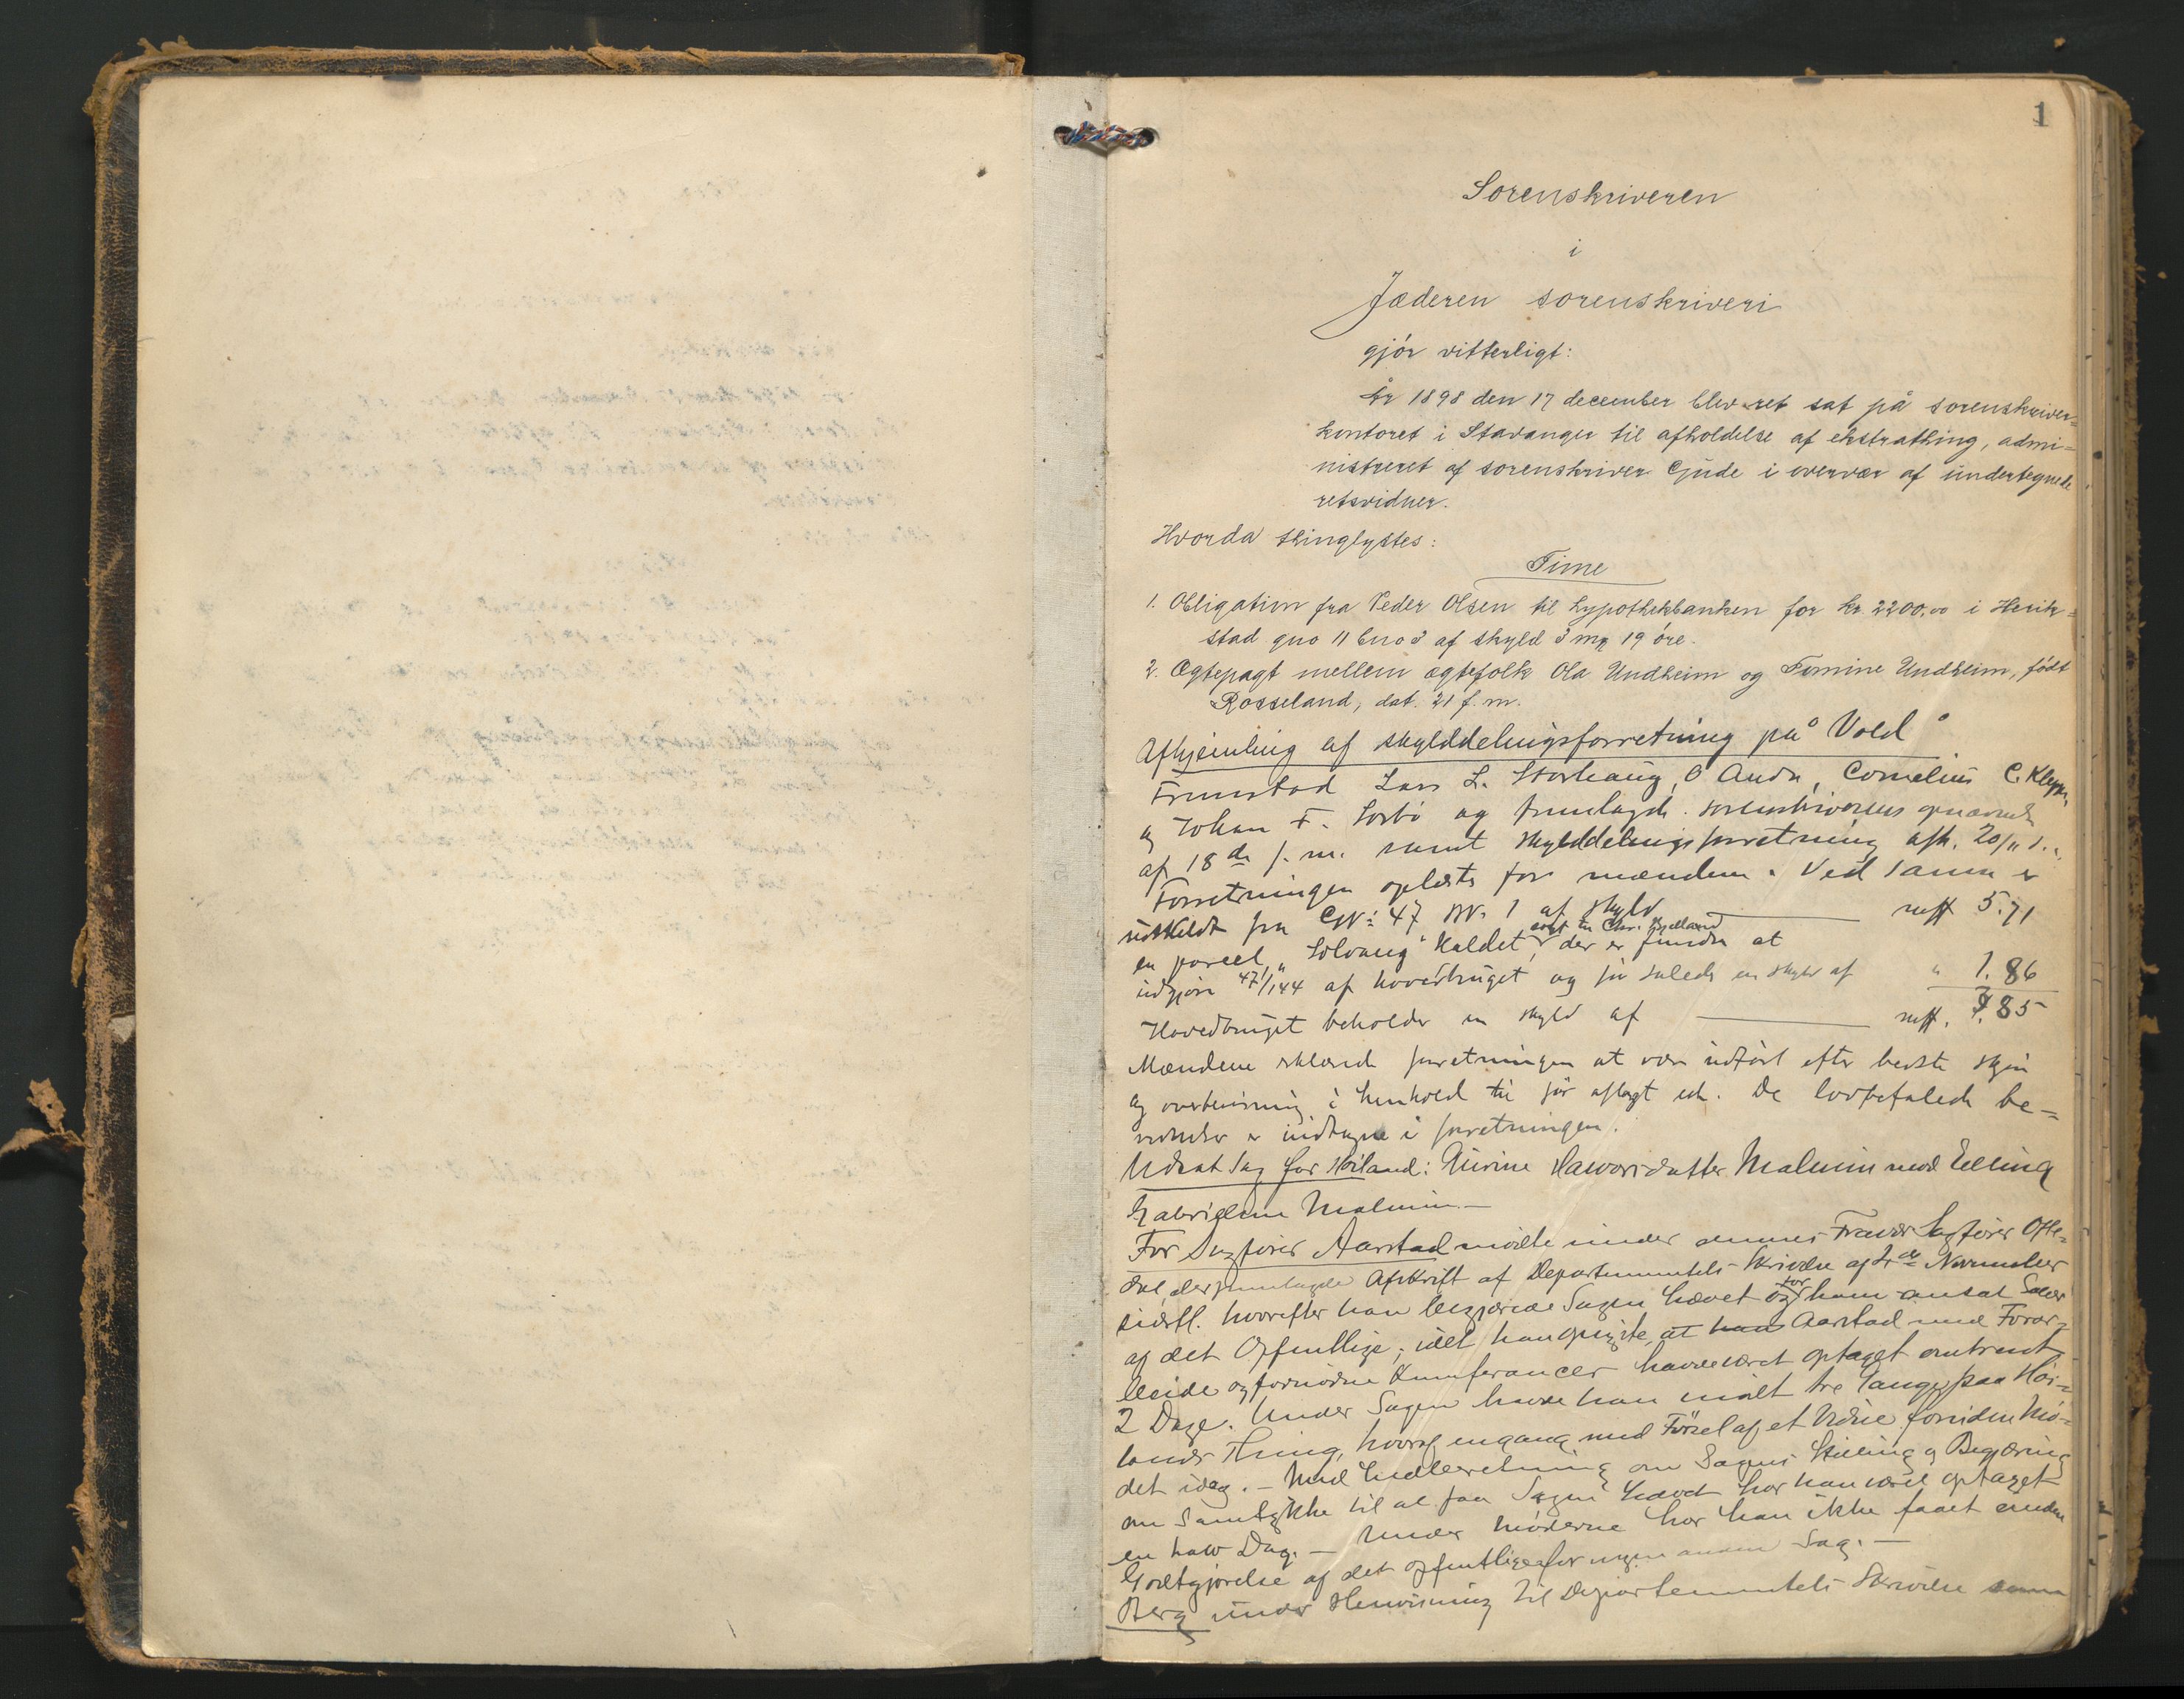 1
Sorenskriveren
i
Jæderen sorenskriveri
gjör vitterligt:
År 1898 den 17 december blev ret sat på sorenskriver=
kontoret i Stavanger til afholdelse af ekstrathing, admi=
nistreret af sorenskriver Gude i overvær af undertegnede
retsvidner.
Hvorda thinglystes:
Time
1. Obligation fra Peder Olsen til hypothekbanken for kr. 2200,00 i Herik=
stad gno 11 bno 3 af skyld 3 mk 19 öre.
2. Ægtepagt mellem ægtefolk Ola Undheim og Tomine Undheim, födt
Rosseland, dat. 21 f. m.
Afhjemling af skylddelingsforretning på Vold
Fremstod Lars L. Storhaug, O Anda, Cornelius C. Klepp,
og Johan F. Sorbö og fremlagde sorenskriverens opnævnelse
af 18de f. m. samt skylddelingsforretning afh. 20/11 d.
Forretningen oplæstes for mændene. Ved samme er
udskildt fra GN: 47 BN. 1 af skyld mk 5.71
en parcel, "Solvang" kaldet, solgt til Chr. Kjelland der er funden at
udgjöre 47/144 af hovedbruget og får således en skyld af " 1.86
Hovedbruget beholder en skyld af mk. 3.85
Mændene erklærede forretningen at være udfört efter bedste skjön
og overbevisning i henhold til för aflagt ed. De lovbefalede be=
er indtagne i forretningen.
Udsat Sag for Höiland: Gurine Haavarsdatter Malmin mod Elling
Gabrielsen Malmin.—
For Sagförer Aarstad mödte under dennes Fravær Sagförer Ofte=
dal, der fremlagde Afskrift af Departementets Skrivelse af 4de November
sidstl. hvorefter han begjærede Sagen hævet og for ham ansat Salær
af det Offentlige; idet han opgiste, at han Aarstad med Forar=
beide og fornödne Konferancer havde været optaget omtrent
2 Dage. Under Sagen havde han mödt tre Gange paa Höi=
lands Thing, hvoraf engang med Försel af et Vidne foruden Mö=
det idag. — Med Indberetning om Sagens Stilling og Begjæring
om Samtykke til at faa Sagen hævet har han været optaget
en halv Dag. — Under Möderne har han ikke faaet anden
Godtgjörelse af det Offentlige for nogen anden Sag. —
Berg under Henvisning til Departementets Skrivelse samt